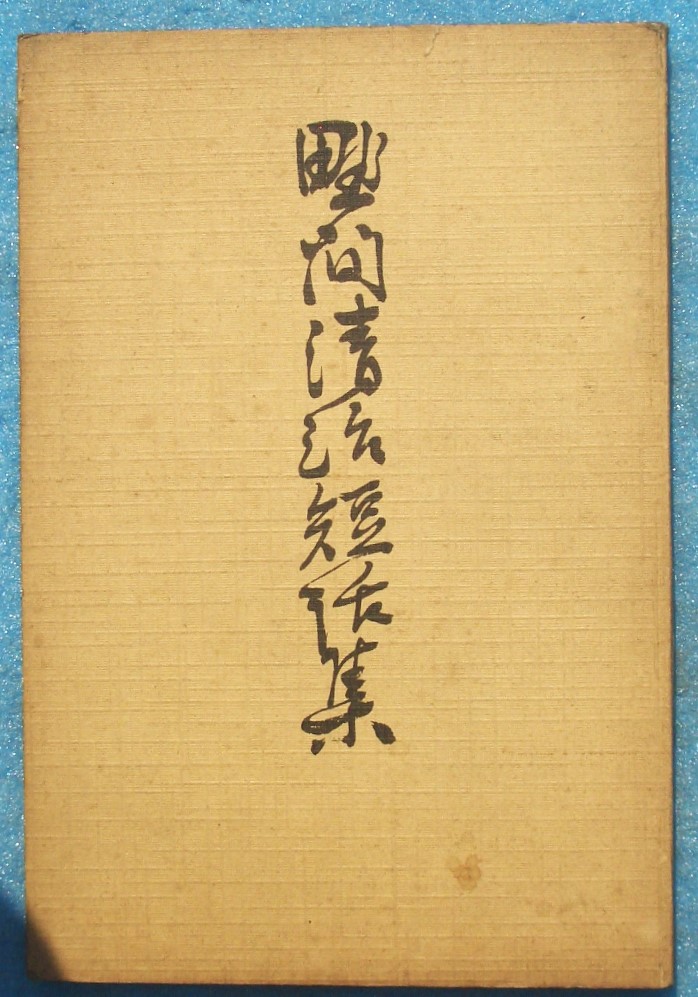 野間清治短話集